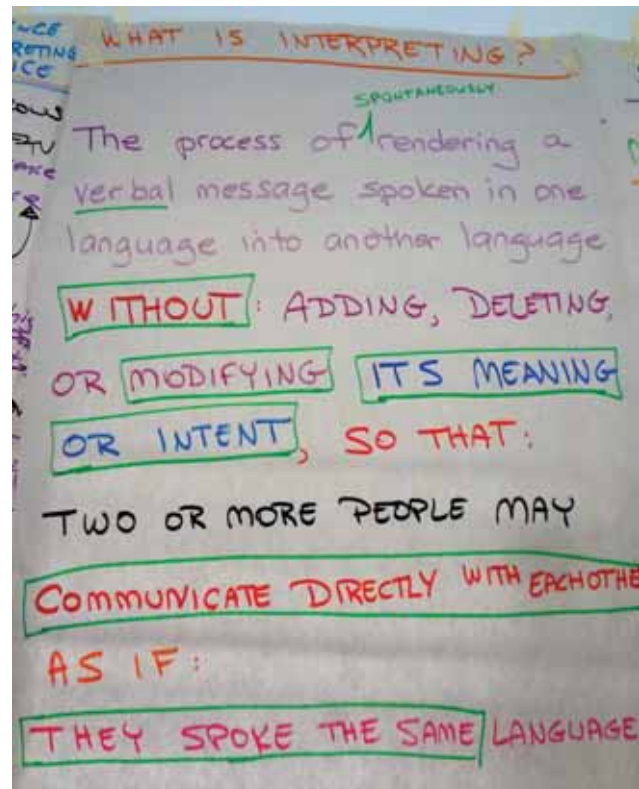 WHAT IS INTERPRETING?
SPONTANEOUSLY
The process of rendering a
verbal message spoken in one
language into another language
WITHOUT: ADDING, DELETING,
OR MODIFYING ITS MEANING
OR INTENT, SO THAT:
TWO OR MORE PEOPLE MAY
COMMUNICATE DIRECTLY WITH EACHOTHE
AS IF:
THEY SPOKE THE SAME LANGUAGE